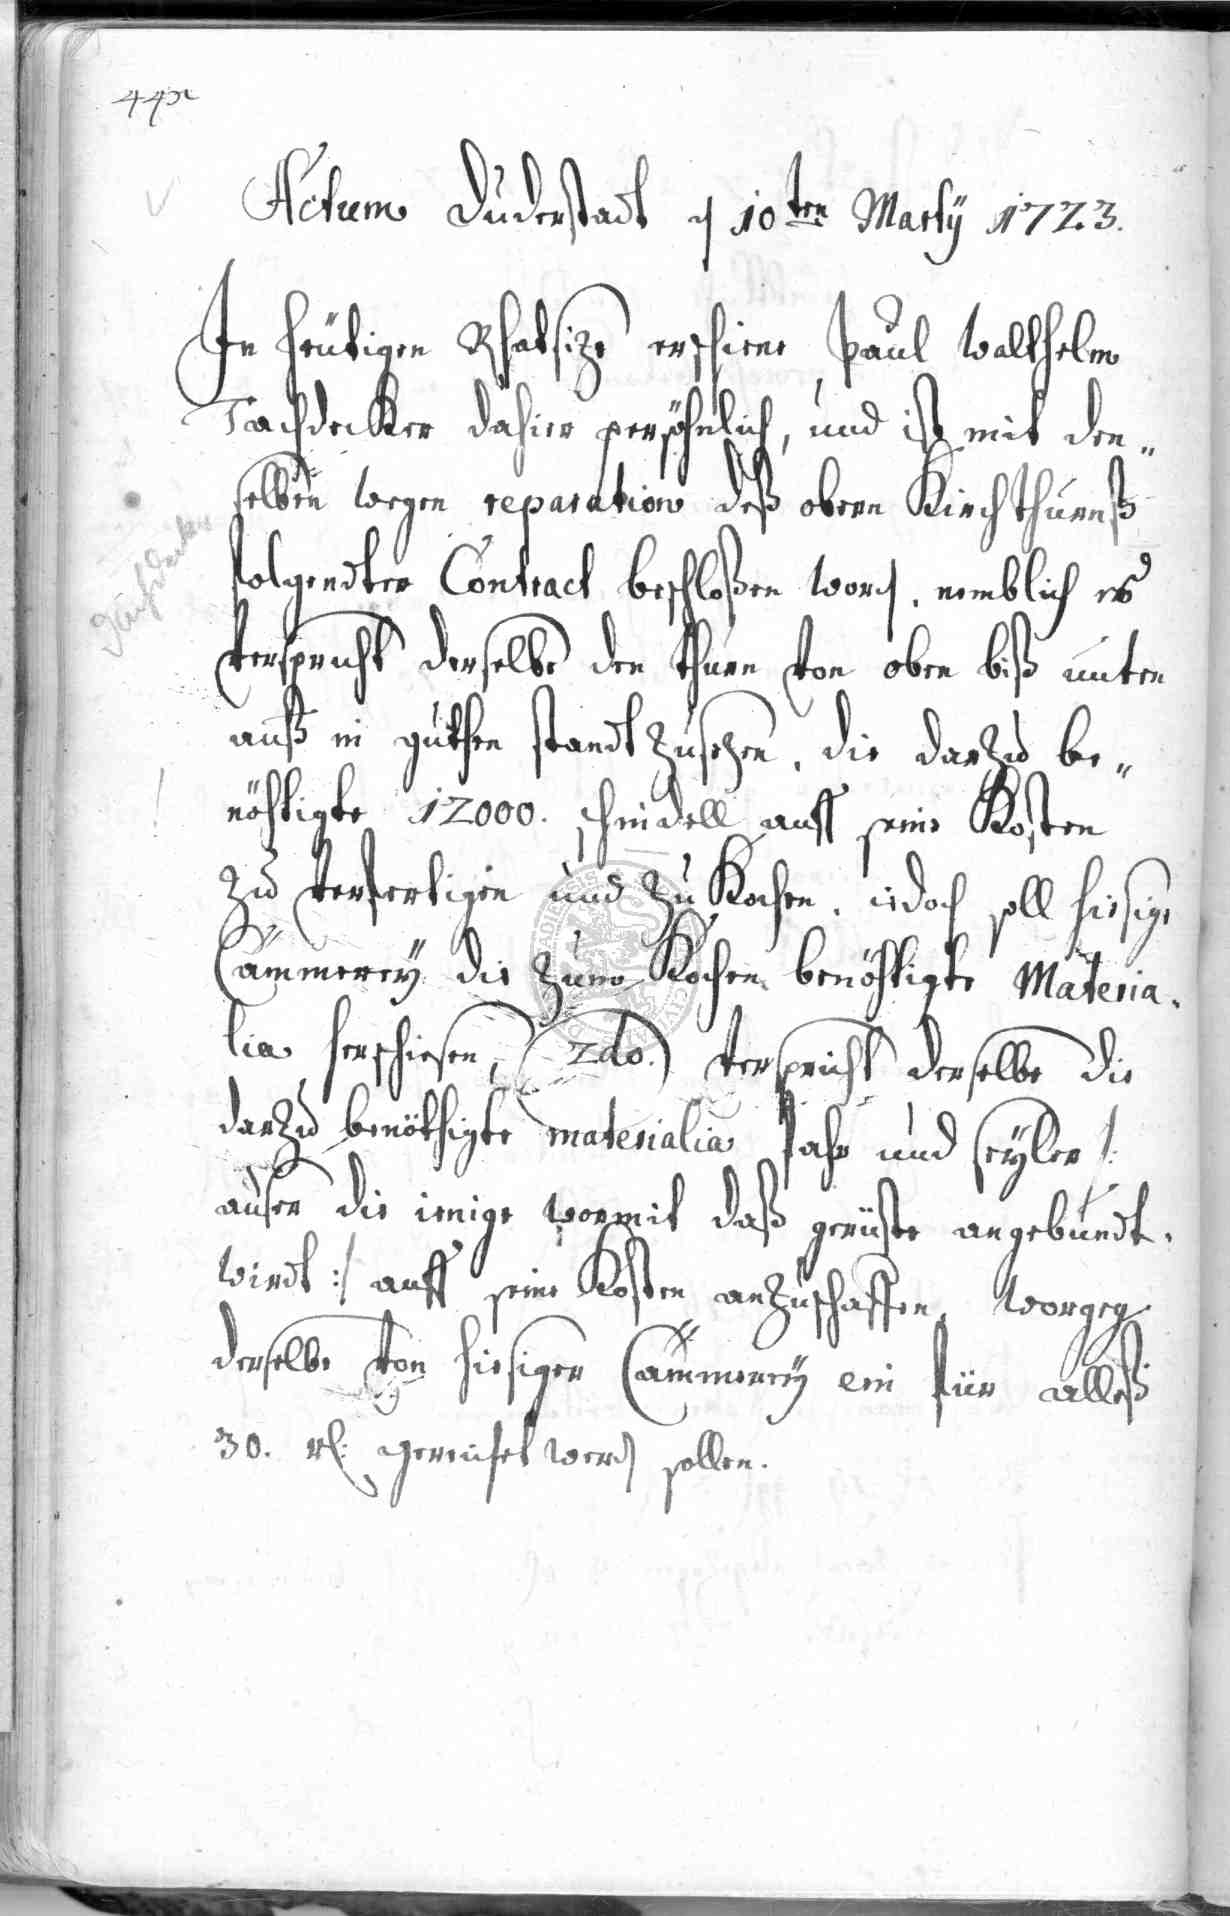 Actum Duderstadt d 10ten Martÿ 1723.
In heütigen Rhatsize erschiene Paul Walthelm
Tachdecker dahier persöhnlich, und ist mit den„
selben wegen reparation deß obern Kirchthurnß
folgendter Contract beschloßen word, nemblich es
verspricht derselbe den thurn von oben biß unten
auß in guthen standt zusezen, die darzu be„
nöhtigte 12000. schindell auff seine Kosten
zu verfertigen und zu Kochen, iedoch soll hiesige
Cämmerey die zum Kochen benöhtigte Materia„
lia herschiesen, 2do. verspricht derselbe die
darzu benöthigte materialia fahr und seyler /:
auser die ienige wormit daß gerüste angebundt
wirdt :/ auff seine Kosten anzuschaffen, worgeg
derselbe von hiesiger Cämmerey ein für alleß
30. rl: gereichet werd sollen.
Tachdecker